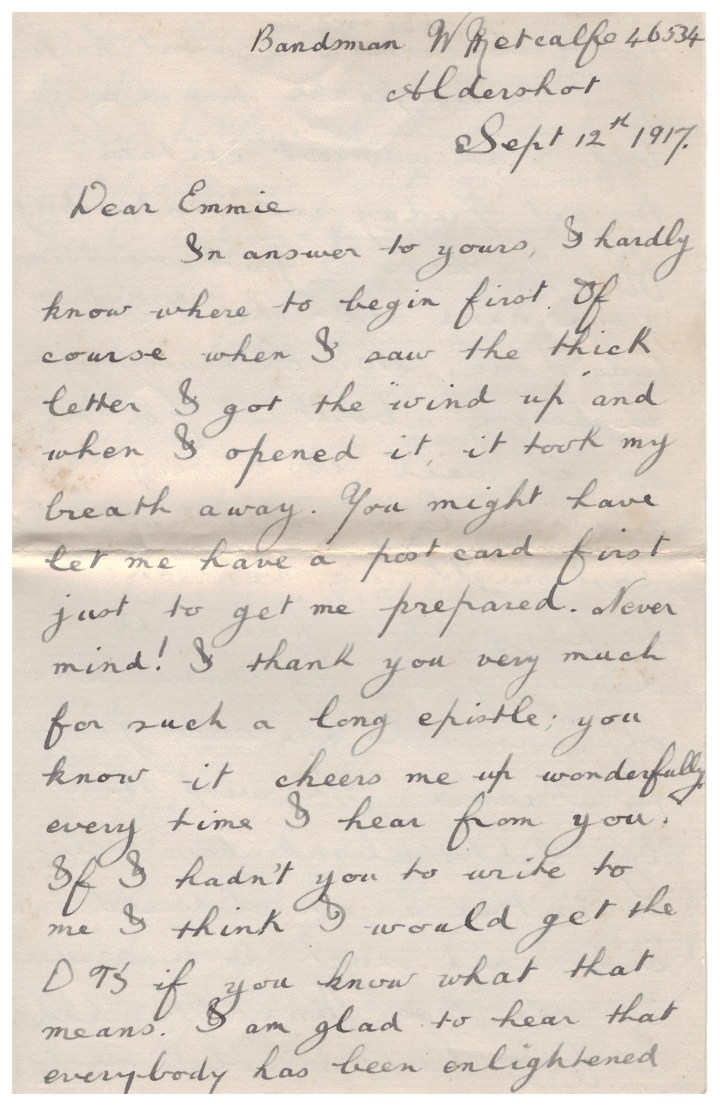 Bandsman W Metcalfe 46534
Aldershot
Sept 12th 1917.
Dear Emmie
In answer to yours, I hardly
know where to begin first. Of
course when I saw the thick
letter I got the "wind up" and
when I opened it, it took my
breath away. You might have
let me have a post card first
just to get me prepared. Never
mind! I thank you very much
for such a long epistle; you
know it cheers me up wonderfully
every time I hear from you.
If I hadn't you to write to
me I think I would get the
D T's if you know what that
means. I am glad to hear that
everybody has been enlightened